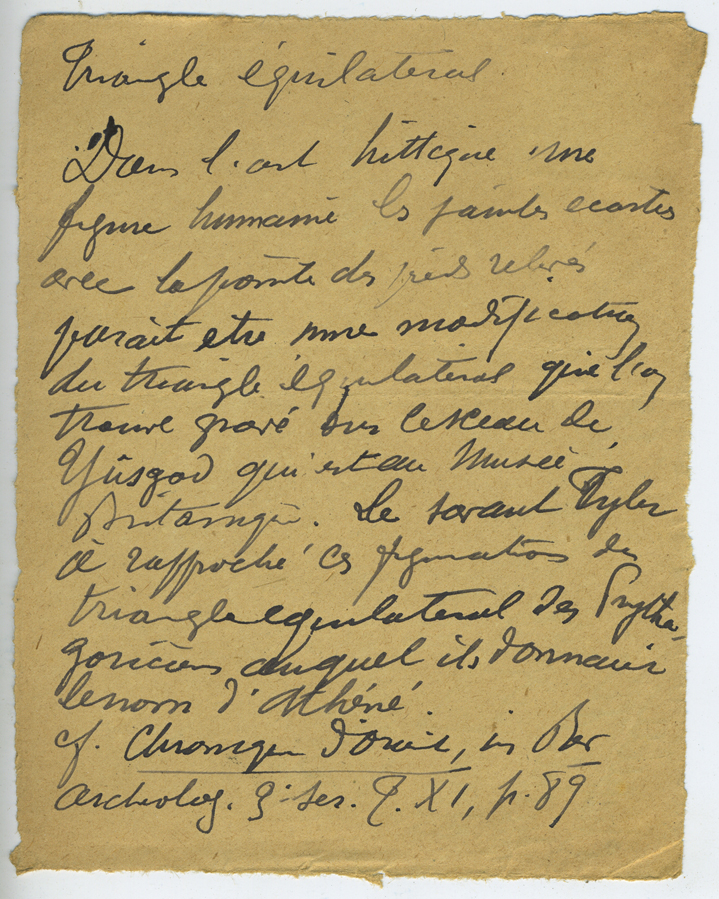 Triangle équilateral
Dans l'art hittique une
figure humaine les jambes ecartées
avec la pointe des pieds relevés
parait etre une modification
du triangle équilateral que l'on
trouve gravé sur le sceau de
Yüsgad qui est au Musée
Britannique. Le savant Tyler
a rapproché ces figurations du
triangle equilateral des Pytha-
goriciens auquel ils donnaient
le nom d'Athéné.
cf. Chronique d'Orient, in Rev
archeolog. 3e ser. T. XI, p. 89